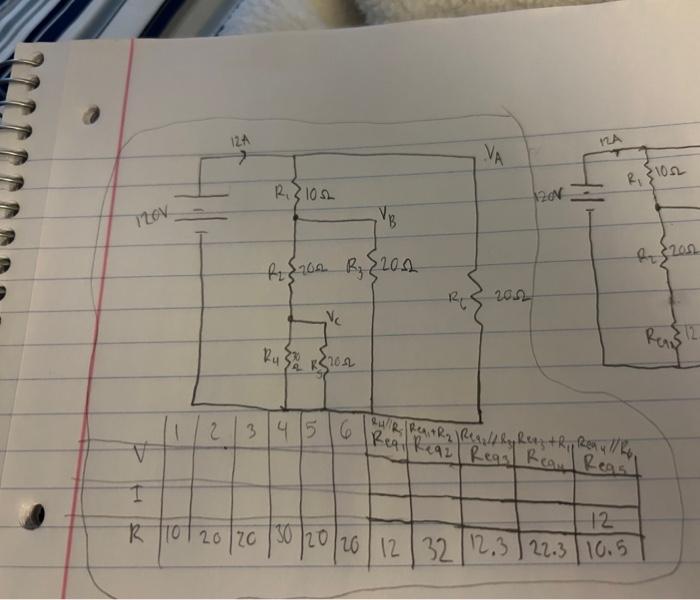 12A
VA
R1 10Ω
120V
VB
R2 20Ω R3 20Ω
R6 20Ω
VC
R4 30Ω R5 20Ω
12A
R1 10Ω
120V
R2 20Ω
Req1 12
1 2 3 4 5 6 R4//R5 Req1 Req1+R2 Req2 Req2//R3 Req3 Req3+R1 Req4 Req4//R6 Req5
V
I 12
R 10 20 20 30 20 20 12 32 12.3 22.3 10.5